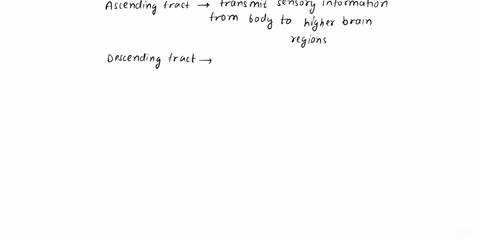 Ascending tract → transmit sensory information
from body to higher brain
regions
Descending tract →